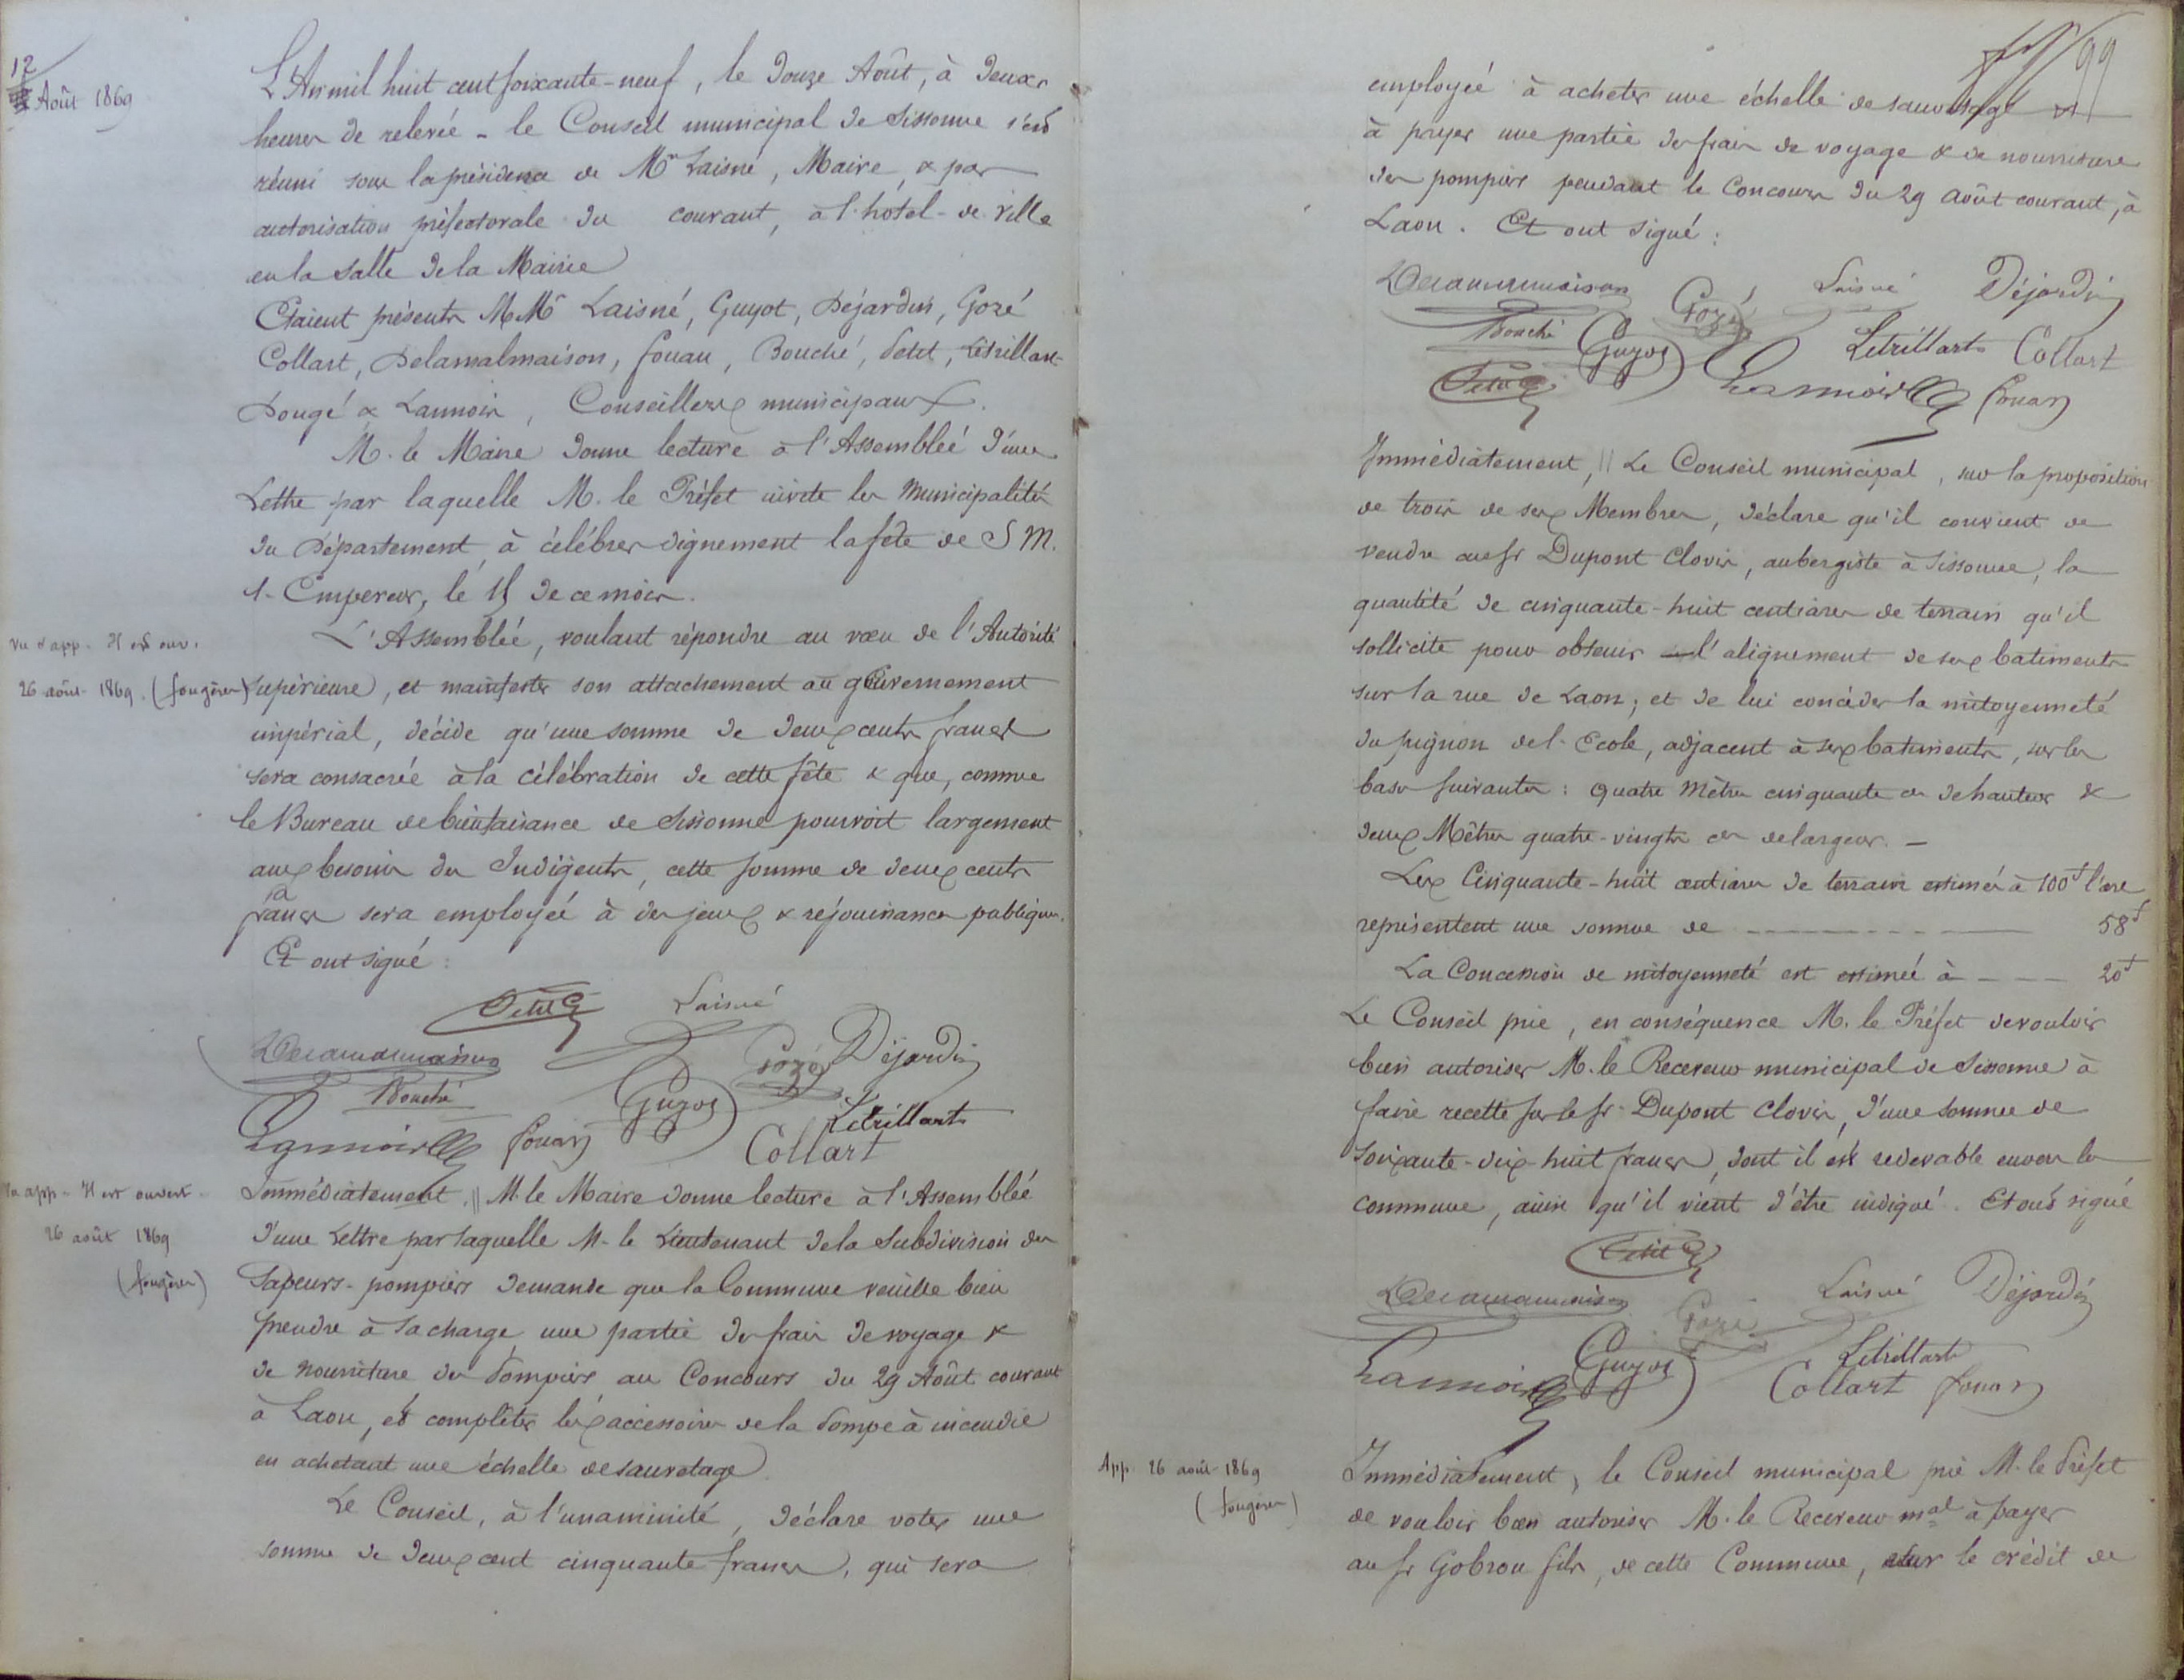 12
Août 1869
L'An mil huit cent soixante-neuf, le Douze Août, à Deux
heures de relevée - le Conseil municipal de Sissonne s'est
réuni sous la présidence de Mr Laisné, Maire, & par
autorisation préfectorale du courant, à l'hotel-de-ville
en la Salle de la Mairie
Etaient présents MMrs Laisné, Guyot, Déjardin, Gozé
Collart, Delamalmaison, fouan, Bouché, Petit, Létrillart
Dougé & Lannois, Conseillers municipaux.
M. le Maire donne lecture à l'Assemblée d'une
Lettre par laquelle M. le Préfet invite les Municipalités
du Département, à célébrer dignement la fête de S M.
l'Empereur, le 15 de ce mois.
Vu & app. Il est ouv.
26 août 1869. (fougères)
L'Assemblée, voulant répondre au vœu de l'Autorité
Supérieure, et manifester son attachement au gouvernement
impérial, décide qu'une somme de deux cents francs
sera consacrée à la célébration de cette fête & que, comme
le Bureau de bienfaisance de Sissonne pourvoit largement
aux besoins des Indigents, cette somme de deux cents
francs sera employée à des jeux & réjouissances publiques.
Et ont signé :
Petit Laisné
Delamalmaison Gozé Déjardin
Bouché Guyot Létrillart
Lannois fouan Collart
Vu app - Il est ouvert.
26 août 1869
(fougères)
Immédiatement, || M. le Maire donne lecture à l'Assemblée
d'une Lettre par laquelle M. le Lieutenant de la Subdivision des
Sapeurs-pompiers demande que la Commune veuille bien
prendre à sa charge, une partie des frais de voyage &
de nourriture des Pompiers au Concours du 29 Août courant
à Laon, et compléter les accessoires de la Pompe à incendie
en achetant une échelle de sauvetage.
Le Conseil, à l'unaminité, déclare voter une
somme de deux cent cinquante francs, qui sera
99
employée à acheter une échelle de sauvetage et
à payer une partie des frais de voyage & de nourriture
des pompiers pendant le Concours du 29 août courant, à
Laon. Et ont signé :
Delamalmaison Gozé Laisné Déjardin
Bouché Guyot Létrillart Collart
Petit Lannois fouan
Immédiatement, || Le Conseil municipal, sur la proposition
de trois de ses Membres, déclare qu'il convient de
vendre au sr Dupont Clovis, aubergiste à Sissonne, la
quantité de cinquante-huit centiares de terrain qu'il
sollicite pour obtenir l'alignement de ses batiments
sur la rue de Laon ; et de lui concéder la mitoyenneté
du pignon de l'Ecole, adjacent à ses batiments, sur les
bases suivantes : quatre Mètres cinquante c. de hauteur &
deux Mètres quatre-vingts c. de largeur. -
Les Cinquante-huit centiares de terrain estimés à 100f l'are
représentent une somme de 58f
La Concession de mitoyenneté est estimée à 20f
Le Conseil prie, en conséquence M. le Préfet de vouloir
bien autoriser M. le Receveur municipal de Sissonne à
faire recette sur le sr Dupont Clovis, d'une somme de
soixante-dix-huit francs, dont il est redevable envers la
commune, ainsi qu'il vient d'être indiqué. Et ont signé
Petit
Delamalmaison Gozé Laisné Déjardin
Lannois Guyot Létrillart
Collart fouan
App. 26 août 1869
(fougères)
Immédiatement, le Conseil municipal prie M. le Préfet
de vouloir bien autoriser M. le Receveur mal à payer
au sr Gobron fils, de cette Commune, sur le crédit de